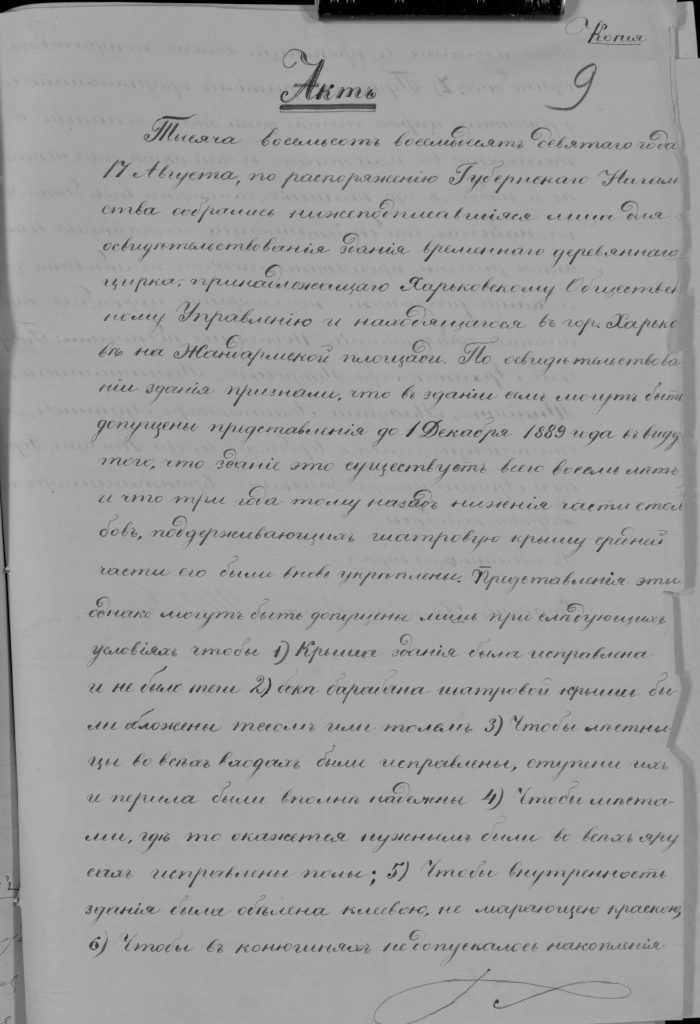 Копія
9
Актъ
Тысяча восемьсотъ восемьдесятъ девятаго года
17 Августа, по распоряженію Губернскаго Началь
ства собрались нижеподписавшіяся лица для
освидѣтельствованія зданія временнаго деревяннаго
цирка, принадлежащаго Харьковскому Обществен
ному Управленію и находящагося въ гор. Харько
вѣ на Жандармской площади. По освидѣтельствова
ніи зданія признали, что въ зданіи семъ могутъ быть
допущены представленія до 1 Декабря 1889 года въ виду
того, что зданіе это существуетъ всего восемь лѣтъ
и что три года тому назадъ нижнія части стол
бовъ, поддерживающихъ шатровую крышу средней
части его были вновь укрѣплены. Представленія эти
однако могутъ быть допущены лишь при слѣдующихъ
условіяхъ чтобы 1) Крыша зданія была исправлена
и не было течи 2) бока барабана шатровой крыши бы
ли обложены тесомъ или толемъ 3) Чтобы лѣстни
цы во всѣхъ входахъ были исправлены, ступени ихъ
и перила были вполнѣ надежны 4) Чтобы мѣста
ми, гдѣ то окажется нужнымъ были во всѣхъ яру
сахъ исправлены полы; 5) Чтобы внутренность
зданія была обѣлена клеевою, не марающею краскою,
6) Чтобы въ конюшняхъ не допускалось накопленія